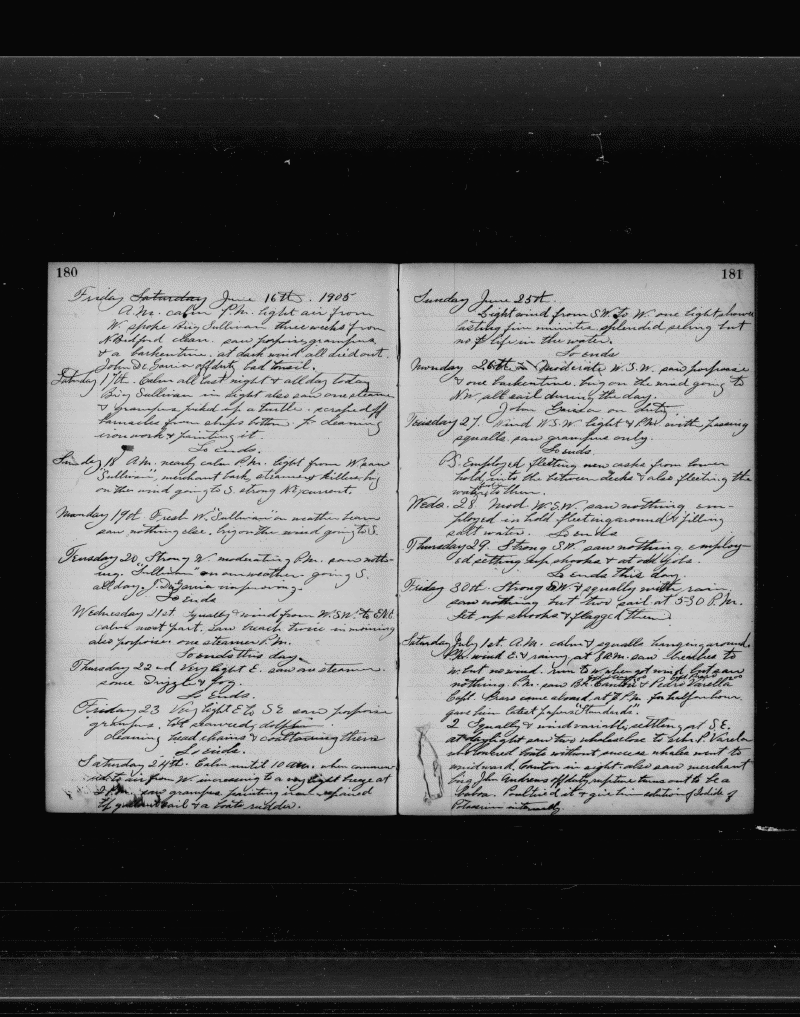 180
Friday Saturday June 16th. 1905
A.M. calm P.M. light air from
W. spoke Brig Sullivan three weeks from
N Bedford clean. saw porpoise, grampus,
& a barkentine. at dark wind all died out.
John De Garcia off duty bad tonsil.
Saturday 17th. Calm all last night & all day today
Brig Sullivan in sight also saw one steamer
& grampus picked up a turtle. scraped off
barnacles from ships bottom. cleaning
ironwork & painting it.
So Ends.
Sunday 18 A.M. nearly calm P.M. light from W. saw
"Sullivan", merchant bark, steamer & killers, brig
on the wind going to S. strong current.
Monday 19th. Fresh W. "Sullivan" on weather beam
saw nothing else. brig on the wind going to S.
Tuesday 20. Strong W. moderating P.M. saw noth-
ing. "Sullivan" on our weather. going S.
all day. improving.
So Ends
Wednesday 21st. Squally & wind from W.S.W. to
calm most part. Saw breach twice in morning
also porpoise. one steamer P.M.
So ends this day
Thursday 22nd Very light E. saw a steamer
some Drizzle & fog.
So Ends.
Friday 23 Very light E to S E saw porpoise
grampus, lot seaweed, dolphin
cleaning head chains & coaltarring them
So ends.
Saturday 24th. Calm until 10 AM. when commen-
ced to air from W. increasing to a very light breeze at
P.M. saw grampus. painting iron. repaired
gallant sail & a boats rudder.
181
Sunday June 25th.
Light wind from SW to W. one light shower
lasting five minutes. splendid seeing but
no life in the water.
So ends
Monday 26th Moderate W.S.W. saw porpoise
& one barkentine. brig on the wind going to
NW all sail during the day.
John Garcia on duty
Tuesday 27. Wind W.S.W. light & P.M. with passing
squalls. saw grampus only.
So ends.
PS. Employed fleeting new casks from lower
hold, into the between decks & also fleeting the
water to them.
Weds. 28 Mod W.S.W. saw nothing. em-
ployed in hold fleeting around & filling
salt water. So ends
Thursday 29. Strong S.W. saw nothing employ-
ed setting up shooks & at odd jobs.
So ends this day.
Friday 30th. Strong SW. & squally with rain
saw nothing but two sail at 5-30 P.M.
Set up shooks & flagged them
Saturday July 1st. A.M. calm & squalls hanging around
P.M. wind E. & rainy. at 8 AM. saw breaches to
W. but no wind. run to when got wind but saw
nothing. P.M. saw Bk. Canton & Pedro Varella
Capt. came aboard at 7 P.M. for half an hour
gave him latest papers "Standards".
2 Squally & wind variable, settling at S.E.
at daylight saw two whales close to schr. P. Varela
who lowered boats without success whales went to
windward. Canton in sight. also saw merchant
brig. John Andrews off duty, rupture turns out to be a
bubo. Poulticed it & give him solution of Iodide of
Potassium internally.